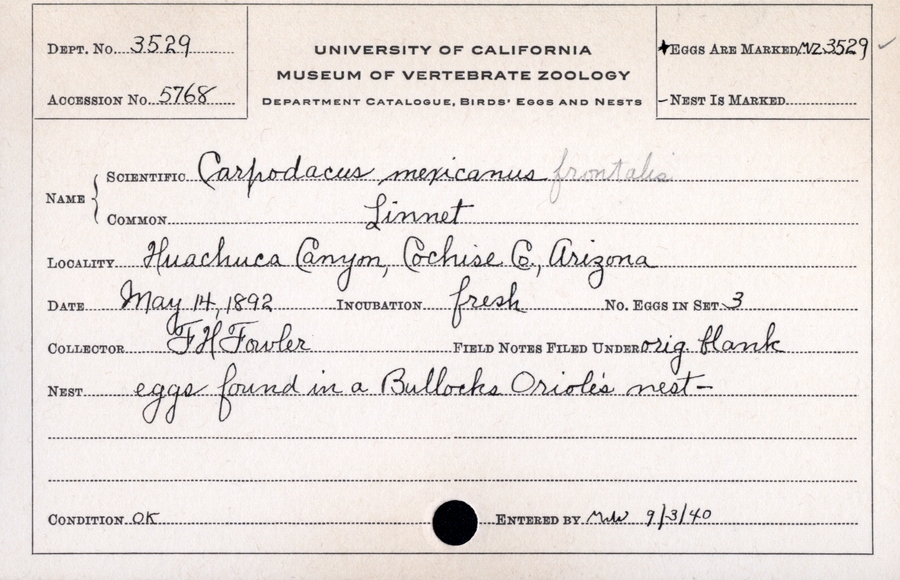 Dept. No. 3529
Accession No. 5768
UNIVERSITY OF CALIFORNIA
MUSEUM OF VERTEBRATE ZOOLOGY
Department Catalogue, Birds' Eggs and Nests
Eggs Are Marked MVZ 3529 ✓
Nest Is Marked
Name
Scientific Carpodacus mexicanus frontalis
Common Linnet
Locality Huachuca Canyon, Cochise Co., Arizona
Date May 14, 1892 Incubation fresh No. Eggs in Set 3
Collector F H Fowler Field Notes Filed Under orig. blank
Nest eggs found in a Bullocks Oriole's nest—
Condition OK Entered by 9/3/40